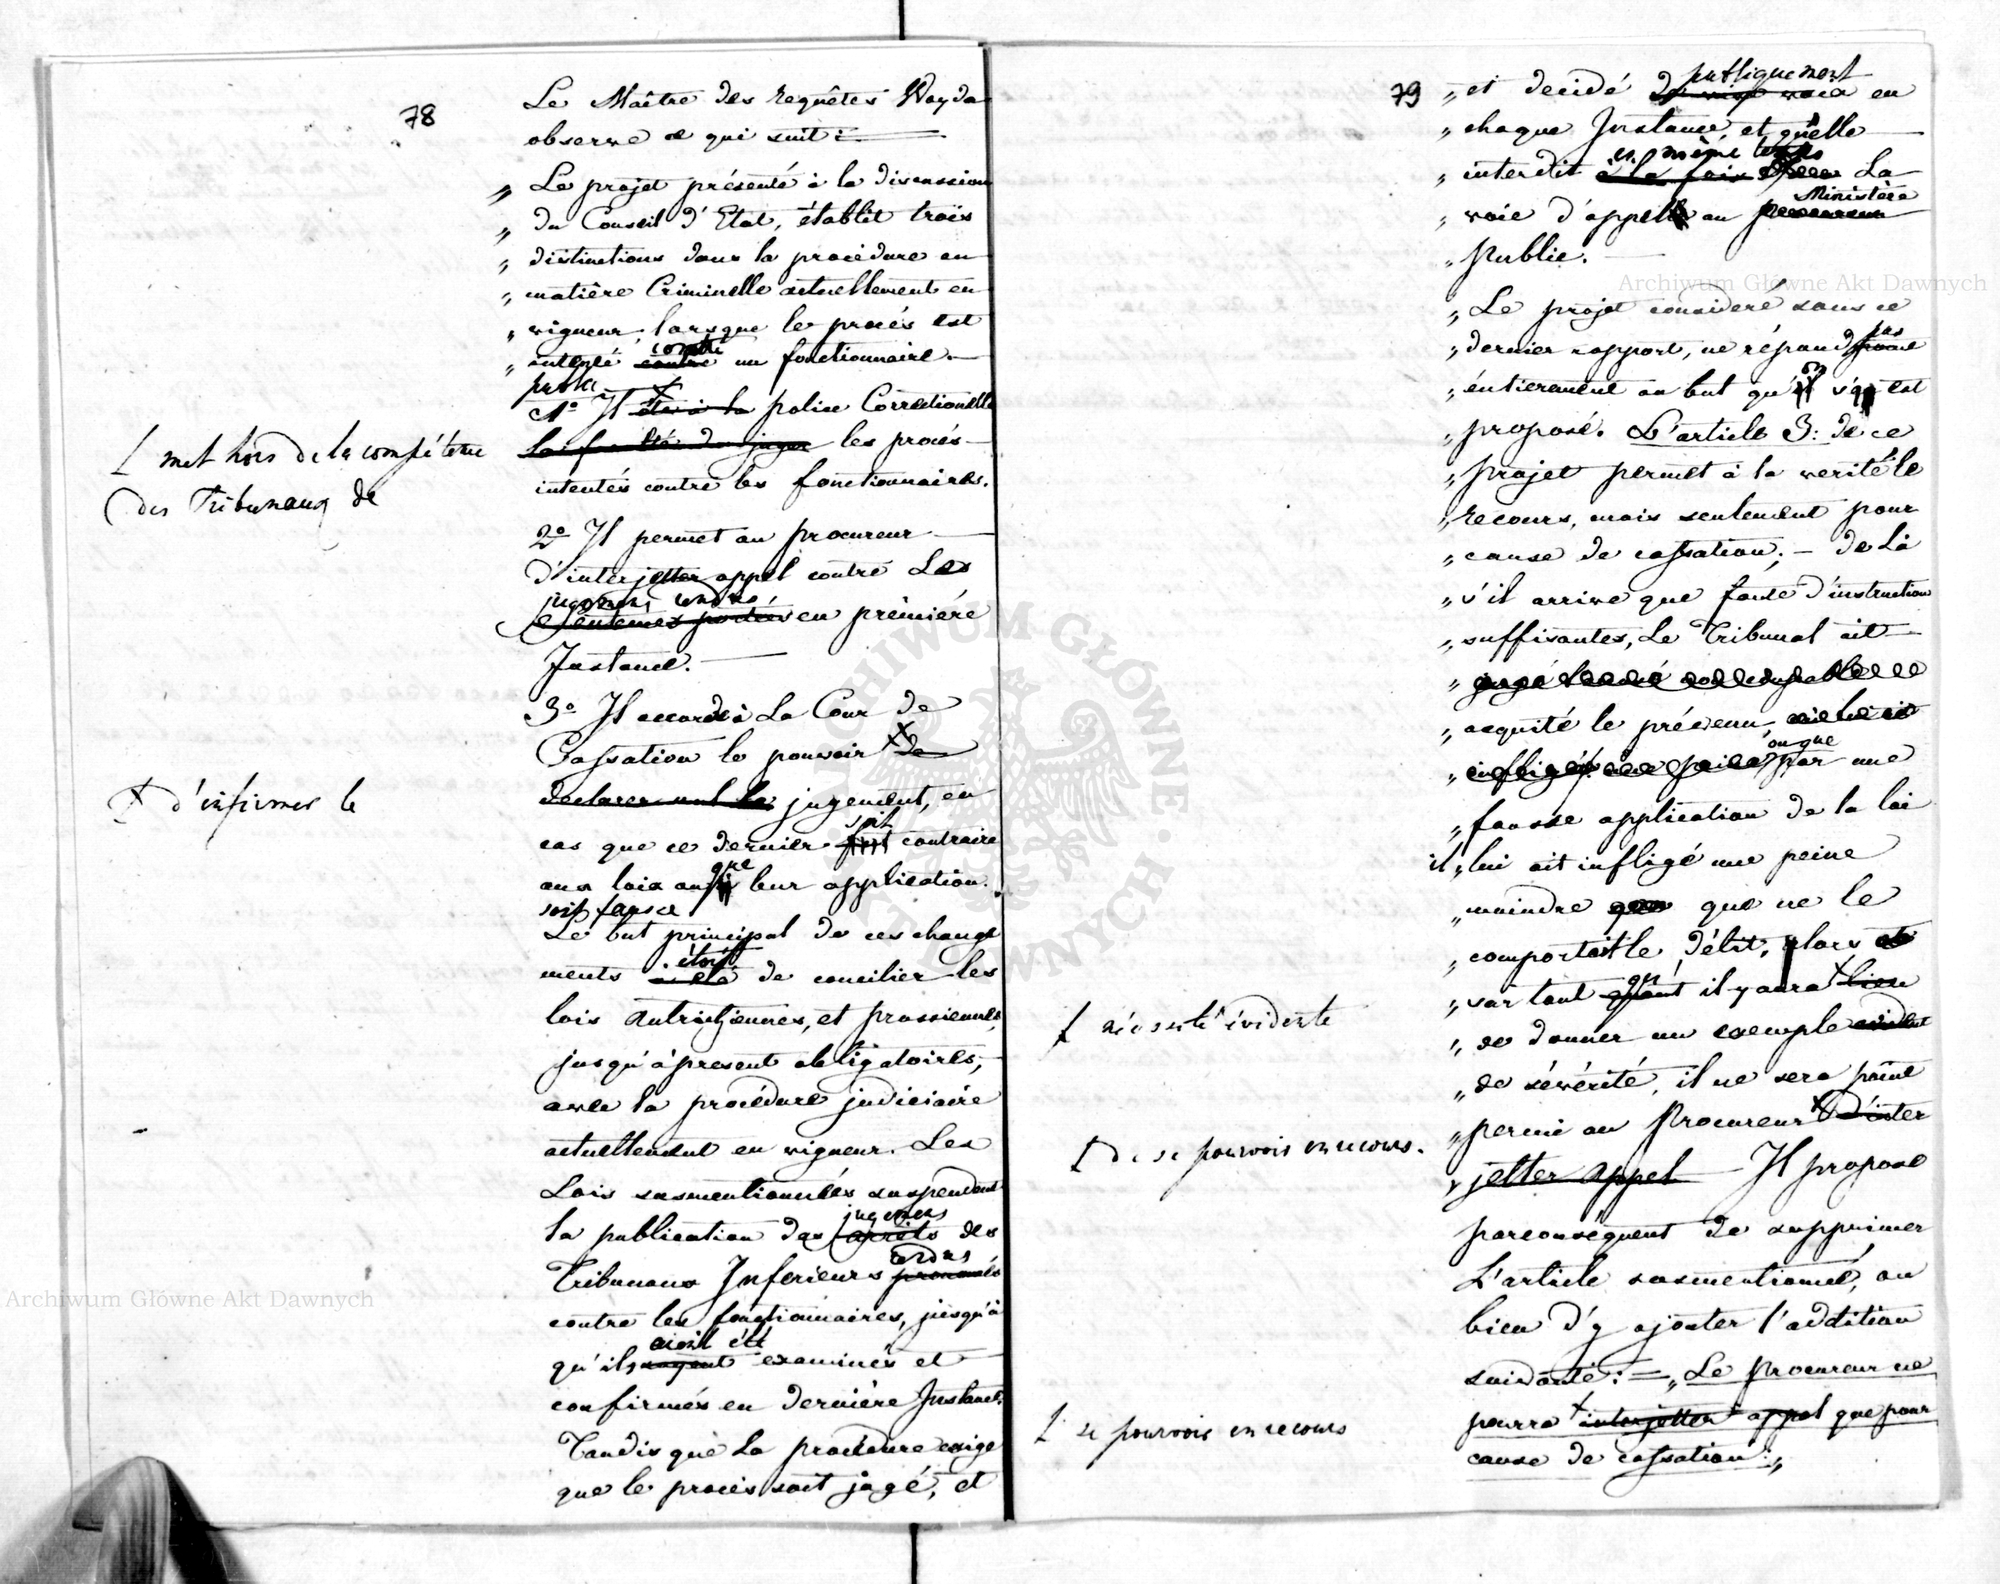 78
Le Maître des requêtes Woyda
observe ce qui suit:
„ Le projet présenté à la discussion
„ du Conseil d'Etat, établit trois
„ distinctions dans la procédure en
„ matière Criminelle actuellement en
„ vigueur, lorsque le procés est
contre
„ intenté contre un fonctionnaire.
1º Il ôte à la police Correctionelle
L met hors de la compétence
des Tribunaux de
la faculté de juger les procés
intentés contre les fonctionnaires.
2º Il permet au procureur
d'interjetter appel contre Les
jugemens rendus
Sentences portées en première
Instance.
3º Il accorde à La Cour de
Cassation le pouvoir de
d'infirmer le
declarer nul le jugement, en
soit
cas que ce dernier fut contraire
que
aux loix ou si leur application
soit fausse
Le but principal de ces change
étoit
ments a été de concilier les
lois Autrichiennes, et prussiennes,
jusqu'à present obligatoires,
avec la procédure judiciaire
actuellement en vigueur. Les
Lois susmentionnées suspendent
jugemens
la publication des arrêts des
rendus
Tribunaux Inferieurs prononcés
contre les fonctionnaires, jusqu'à
aient été
qu'ils soyent examinés et
confirmés en dernière Instance.
Tandis que La procédure exige
que le procés soit jugé, et
79
publiquement
„ et decidé de vive voix en
„ chaque Instance, et qu'elle
en même tems
„ interdit à la fois La
Ministère
„ voie d'appel au procureur
„ Public.
„ Le projet consideré sous ce
pas
„ dernier rapport, ne répond point
on
„ entierement au but qu'il s'est
„ proposé. L'article 3: de ce
„ projet permet à la verité le
„ recours, mais seulement pour
„ cause de cassation; – de là
„ s'il arrive que faute d'instruction
„ suffisantes, Le Tribunal ait
„ acquité le prévenu,
ou que
„ par une
„ fausse application de la loi
il „ lui ait infligé une peine
„ moindre que ne le
„ comportoit le délit, alors
„ sur tout qu'il y aura lieu
nécessité évidente
„ de donner un exemple
„ de sévérité, il ne sera point
„ permi au Procureur d'inter
de se pourvoir en recours.
„ jetter appel Il propose
parconséquent de supprimer
L'article susmentionné, ou
bien d'y ajouter l'addition
suivante: „ Le procureur ne
pourra interjetter appel que pour
se pourvoir en recours
cause de cassation. „
Archiwum Główne Akt Dawnych
Archiwum Główne Akt Dawnych
ARCHIWUM GŁÓWNE AKT DAWNYCH